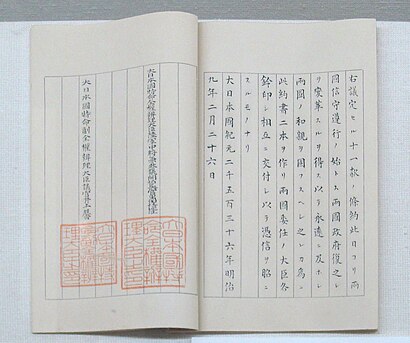 右議定セル十一款ノ條約此日ヨリ兩
國信守遵行ノ始トス兩國政府復之レ
ヲ變革スルヲ得ス以テ永遠ニ及ホシ
兩國ノ和親ヲ固フスヘシ之レカ為ニ
此約書二本ヲ作リ兩國委任ノ大臣各
鈐印シ相互ニ交付シ以テ憑信ヲ昭ニ
スルモノナリ
大日本國紀元二千五百三十六年明治
九年二月二十六日
大日本國特命全權辦理大臣陸軍中將兼參議開拓長官黑田清隆
大日本國特命副全權辦理大臣議官井上馨